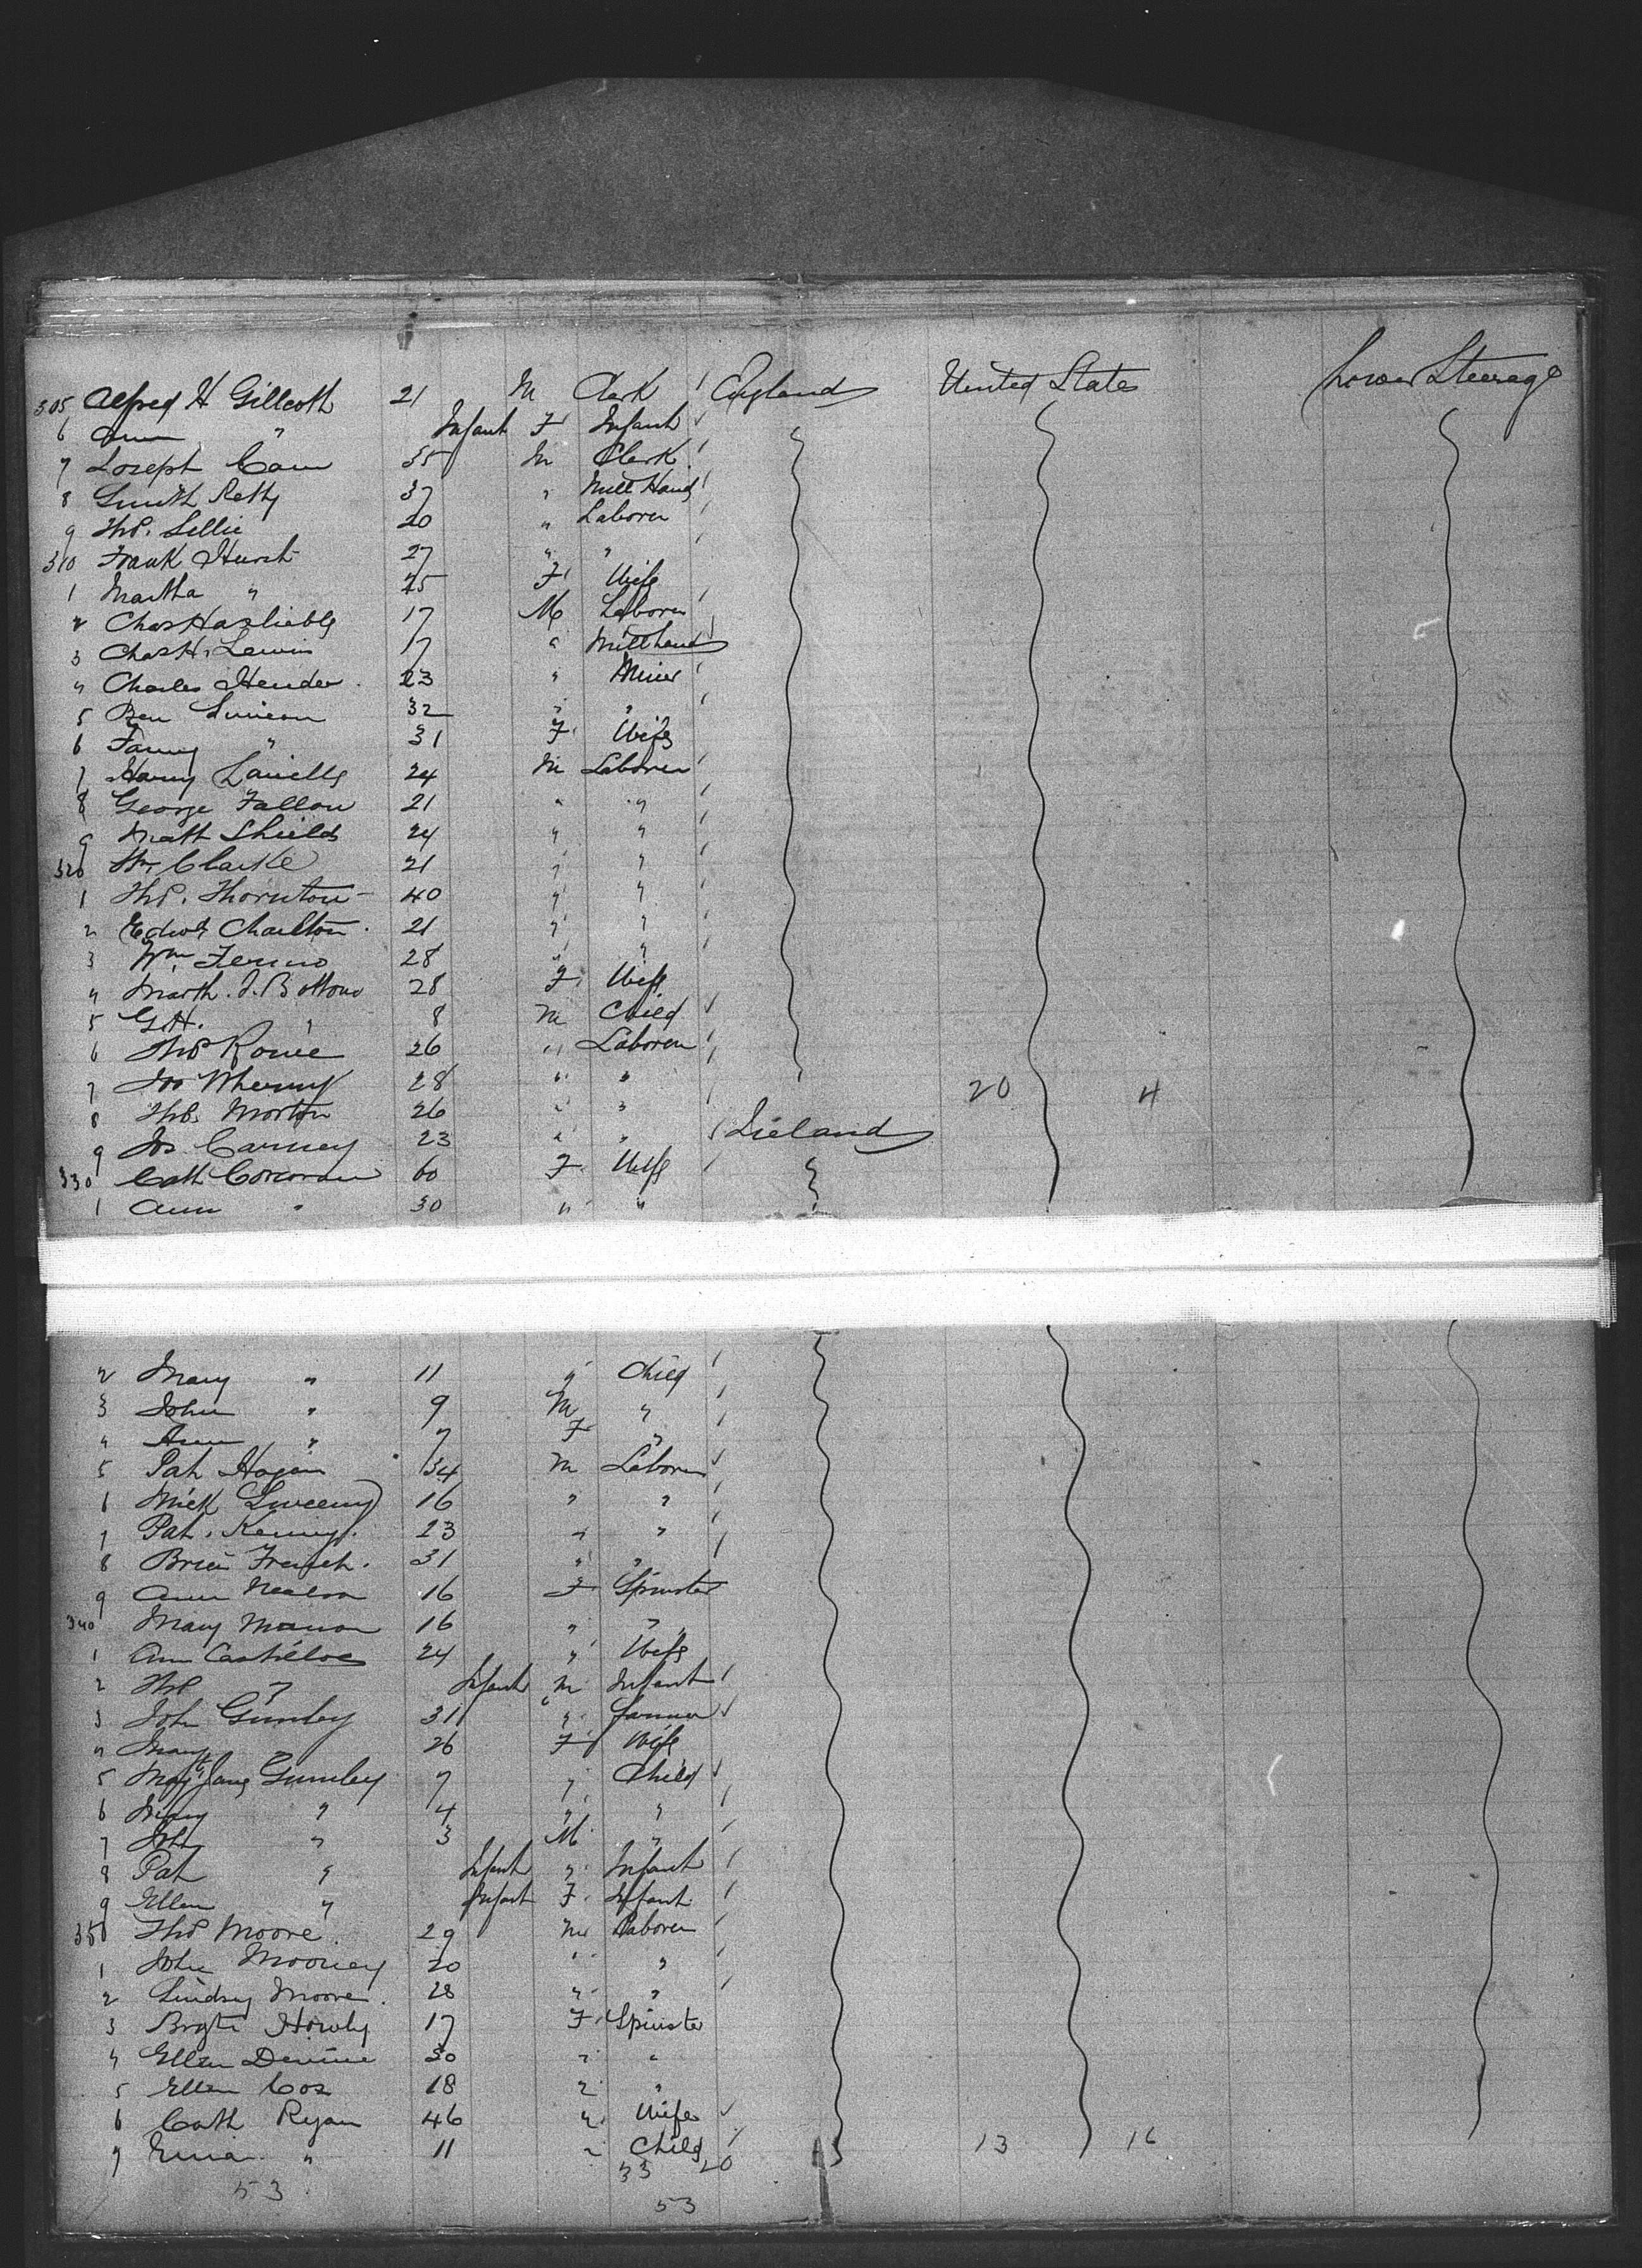 305 Alfred H Gillcoth 21 M Clark England United States Lower Steerage
6 Ann " Infant F Infant
7 Joseph Cam 35 M Clerk
8 Smith Retty 37 " Mill Hand
9 Thos. Lillie 20 " Laborer
310 Frank Hurst 27 " "
1 Martha " 25 F Wife
2 Chas 17 M Laborer
3 Chas H. Lewin 17 " Millhand
4 Charles Hender 23 " Miner
5 Ben 32 " "
6 Fanny " 31 F Wife
7 Harry 24 M Laborer
8 George Fallow 21 " "
9 Matt Shields 24 " "
320 Wm Clarke 21 " "
1 Thos. Thornton 40 " "
2 Edwd Charlton 21 " "
3 Wm 28 " "
4 Marth. J. Bottom 28 F Wife
5 G.H. " 8 M Child
6 Thos Rowe 26 " Laborer
7 Jos 28 " " 20 4
8 Thos. Morton 26 " "
9 Jos Carney 23 " " Ireland
330 Cath Corcoran 60 F Wife
1 Ann " 30 " "
2 Mary " 11 " Child
3 John " 9 M "
4 Ann " 7 F "
5 Pat Hogan 34 M Laborer
6 Mick Sweeny 16 " "
7 Pat. Kenny. 23 " "
8 Brien French. 31 " "
9 Ann Nealon 16 F Spinster
340 Mary Manion 16 " "
1 Ann Costelloe 24 " Wife
2 Thos " Infant M Infant
3 John Gumley 31 " Farmer
4 Mary " 26 F Wife
5 Mary Jane Gumley 7 " Child
6 " 4 " "
7 John " 3 M "
8 Pat " Infant " Infant
9 Ellen " Infant F Infant
350 Thos Moore 29 M Laborer
1 John Mooney 20 " "
2 Lindsy Moore 28 " "
3 Brgt Howly 17 F Spinster
4 Ellen Devine 30 " "
5 Ellen Cox 18 " "
6 Cath Ryan 46 " Wife
7 " 11 " Child 13 16
33 20
53 53